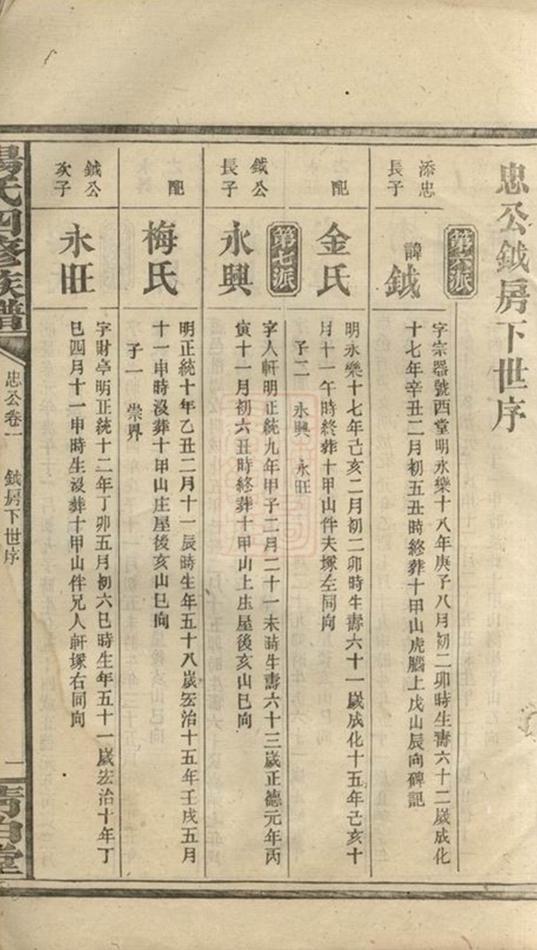 忠公鉞房下世序
第六派
添忠
長子
諱鉞
字宗器號西堂明永樂十八年庚子八月初二卯時生壽六十二歲成化
十七年辛丑二月初五丑時終葬十甲山虎腦上戌山辰向碑記
配
金氏
明永樂十七年己亥二月初二卯時生壽六十一歲成化十五年己亥十
月十一午時終葬十甲山伴夫塚左同向
子二 永興 永旺
第七派
鉞公
長子
永興
字人軒明正統九年甲子二月二十一未時生壽六十三歲正德元年丙
寅十一月初六丑時終葬十甲山上庄屋後亥山巳向
配
梅氏
明正統十年乙丑二月十一辰時生年五十八歲宏治十五年壬戌五月
十一申時沒葬十甲山庄屋後亥山巳向
子一 崇界
鉞公
次子
永旺
字財亭明正統十二年丁卯五月初六巳時生年五十一歲宏治十年丁
巳四月十一申時生沒葬十甲山伴兄人軒塚右同向
楊氏四修族譜
忠公卷一
鉞房下世序
一
清白堂